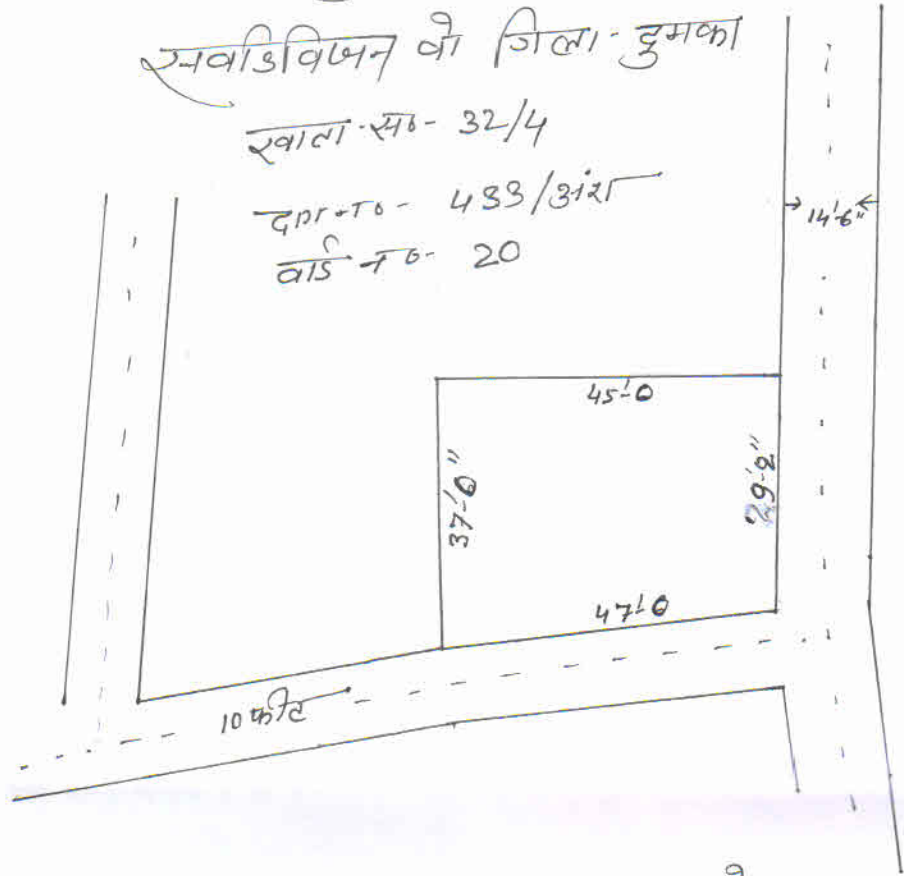 सवडिविजन वो जिला-दुमका
खाता-सं०- 32/4
दाग नं०- 433/अंश
वार्ड नं०- 20
14'-6"
45'-0
37'-0"
29'-2"
47'-0
10 फीट